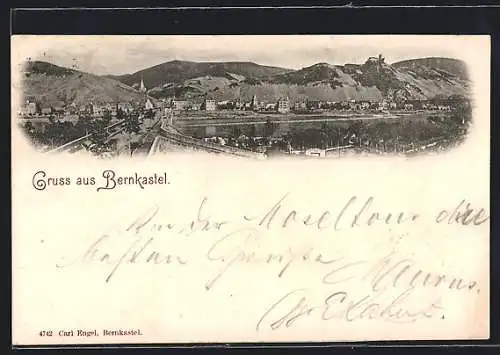 Gruss aus Bernkastel.
An der Moseltour die
besten Grüsse
4742 Carl Engel, Bernkastel.